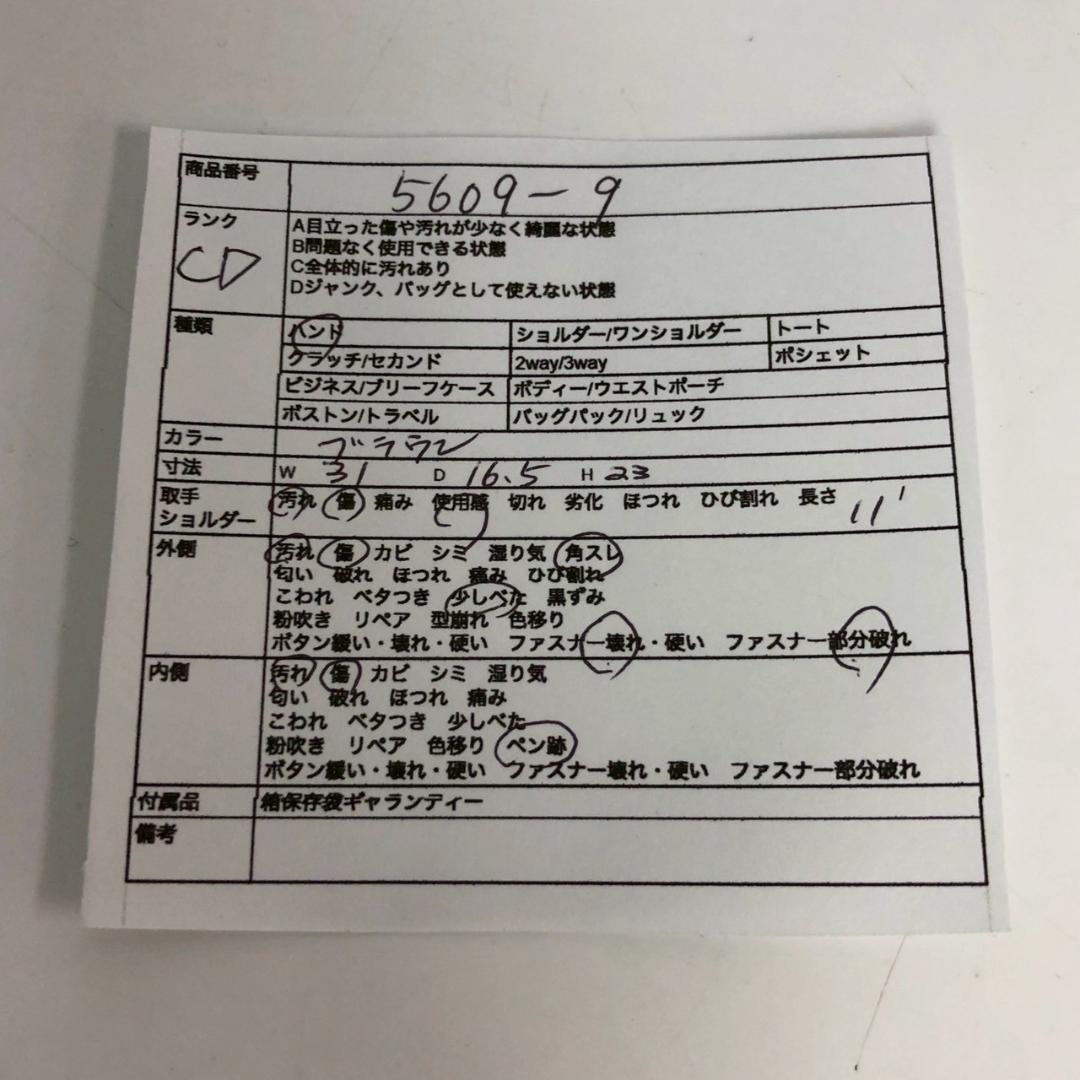 商品番号 5609-9
ランク CD
A目立った傷や汚れが少なく綺麗な状態
B問題なく使用できる状態
C全体的に汚れあり
Dジャンク、バッグとして使えない状態
種類 ハンド ショルダー/ワンショルダー トート
クラッチ/セカンド 2way/3way ポシェット
ビジネス/ブリーフケース ボディー/ウエストポーチ
ボストン/トラベル バッグパック/リュック
カラー ブラウン
寸法 W 31 D 16.5 H 23
取手 ショルダー 汚れ 傷 痛み 使用感 切れ 劣化 ほつれ ひび割れ 長さ 11
外側 汚れ 傷 カビ シミ 湿り気 角スレ
匂い 破れ ほつれ 痛み ひび割れ
こわれ ベタつき 少しべた 黒ずみ
粉吹き リペア 型崩れ 色移り
ボタン緩い・壊れ・硬い ファスナー壊れ・硬い ファスナー部分破れ
内側 汚れ 傷 カビ シミ 湿り気
匂い 破れ ほつれ 痛み
こわれ ベタつき 少しべた
粉吹き リペア 色移り ペン跡
ボタン緩い・壊れ・硬い ファスナー壊れ・硬い ファスナー部分破れ
付属品 箱保存袋ギャランティー
備考